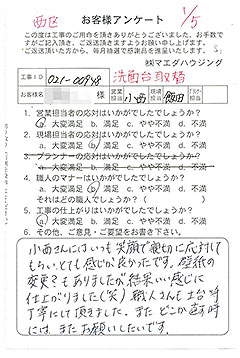 西区
お客様アンケート
1/5
この度は工事のご用命を頂きありがとうございます。お手数で
すがご記入頂き、ご返送頂きますようお願い申し上げます。
ご返送頂いた方から、毎月抽選で感謝品を進呈いたします。
㈱マエダハウジング
工事ID 021-00948 洗面台取替
様 営業担当 小西 現場担当 飯田
1. 営業担当者の対応はいかがでしたでしょうか?
a. 大変満足 b. 満足 c. やや不満 d. 不満
2. 現場担当者の対応はいかがでしたでしょうか?
a. 大変満足 b. 満足 c. やや不満 d. 不満
3. プランナーの対応はいかがでしたでしょうか?
a. 大変満足 b. 満足 c. やや不満 d. 不満
4. 職人のマナーはいかがでしたでしょうか?
a. 大変満足 b. 満足 c. やや不満 d. 不満
それはどの職人でしょうか( )
5. 工事の仕上がりはいかがでしたでしょうか?
a. 大変満足 b. 満足 c. やや不満 d. 不満
6. その他、ご意見・ご要望をお書き下さい。
小西さんにはいつも笑顔で親切に応対して
もらい、とても感じが良かったです。壁紙の
変更?もありましたが結果いい感じに
仕上がりました(笑)職人さんも
丁寧にして頂きました。またどこか直す時
には、またお願いしたいです。